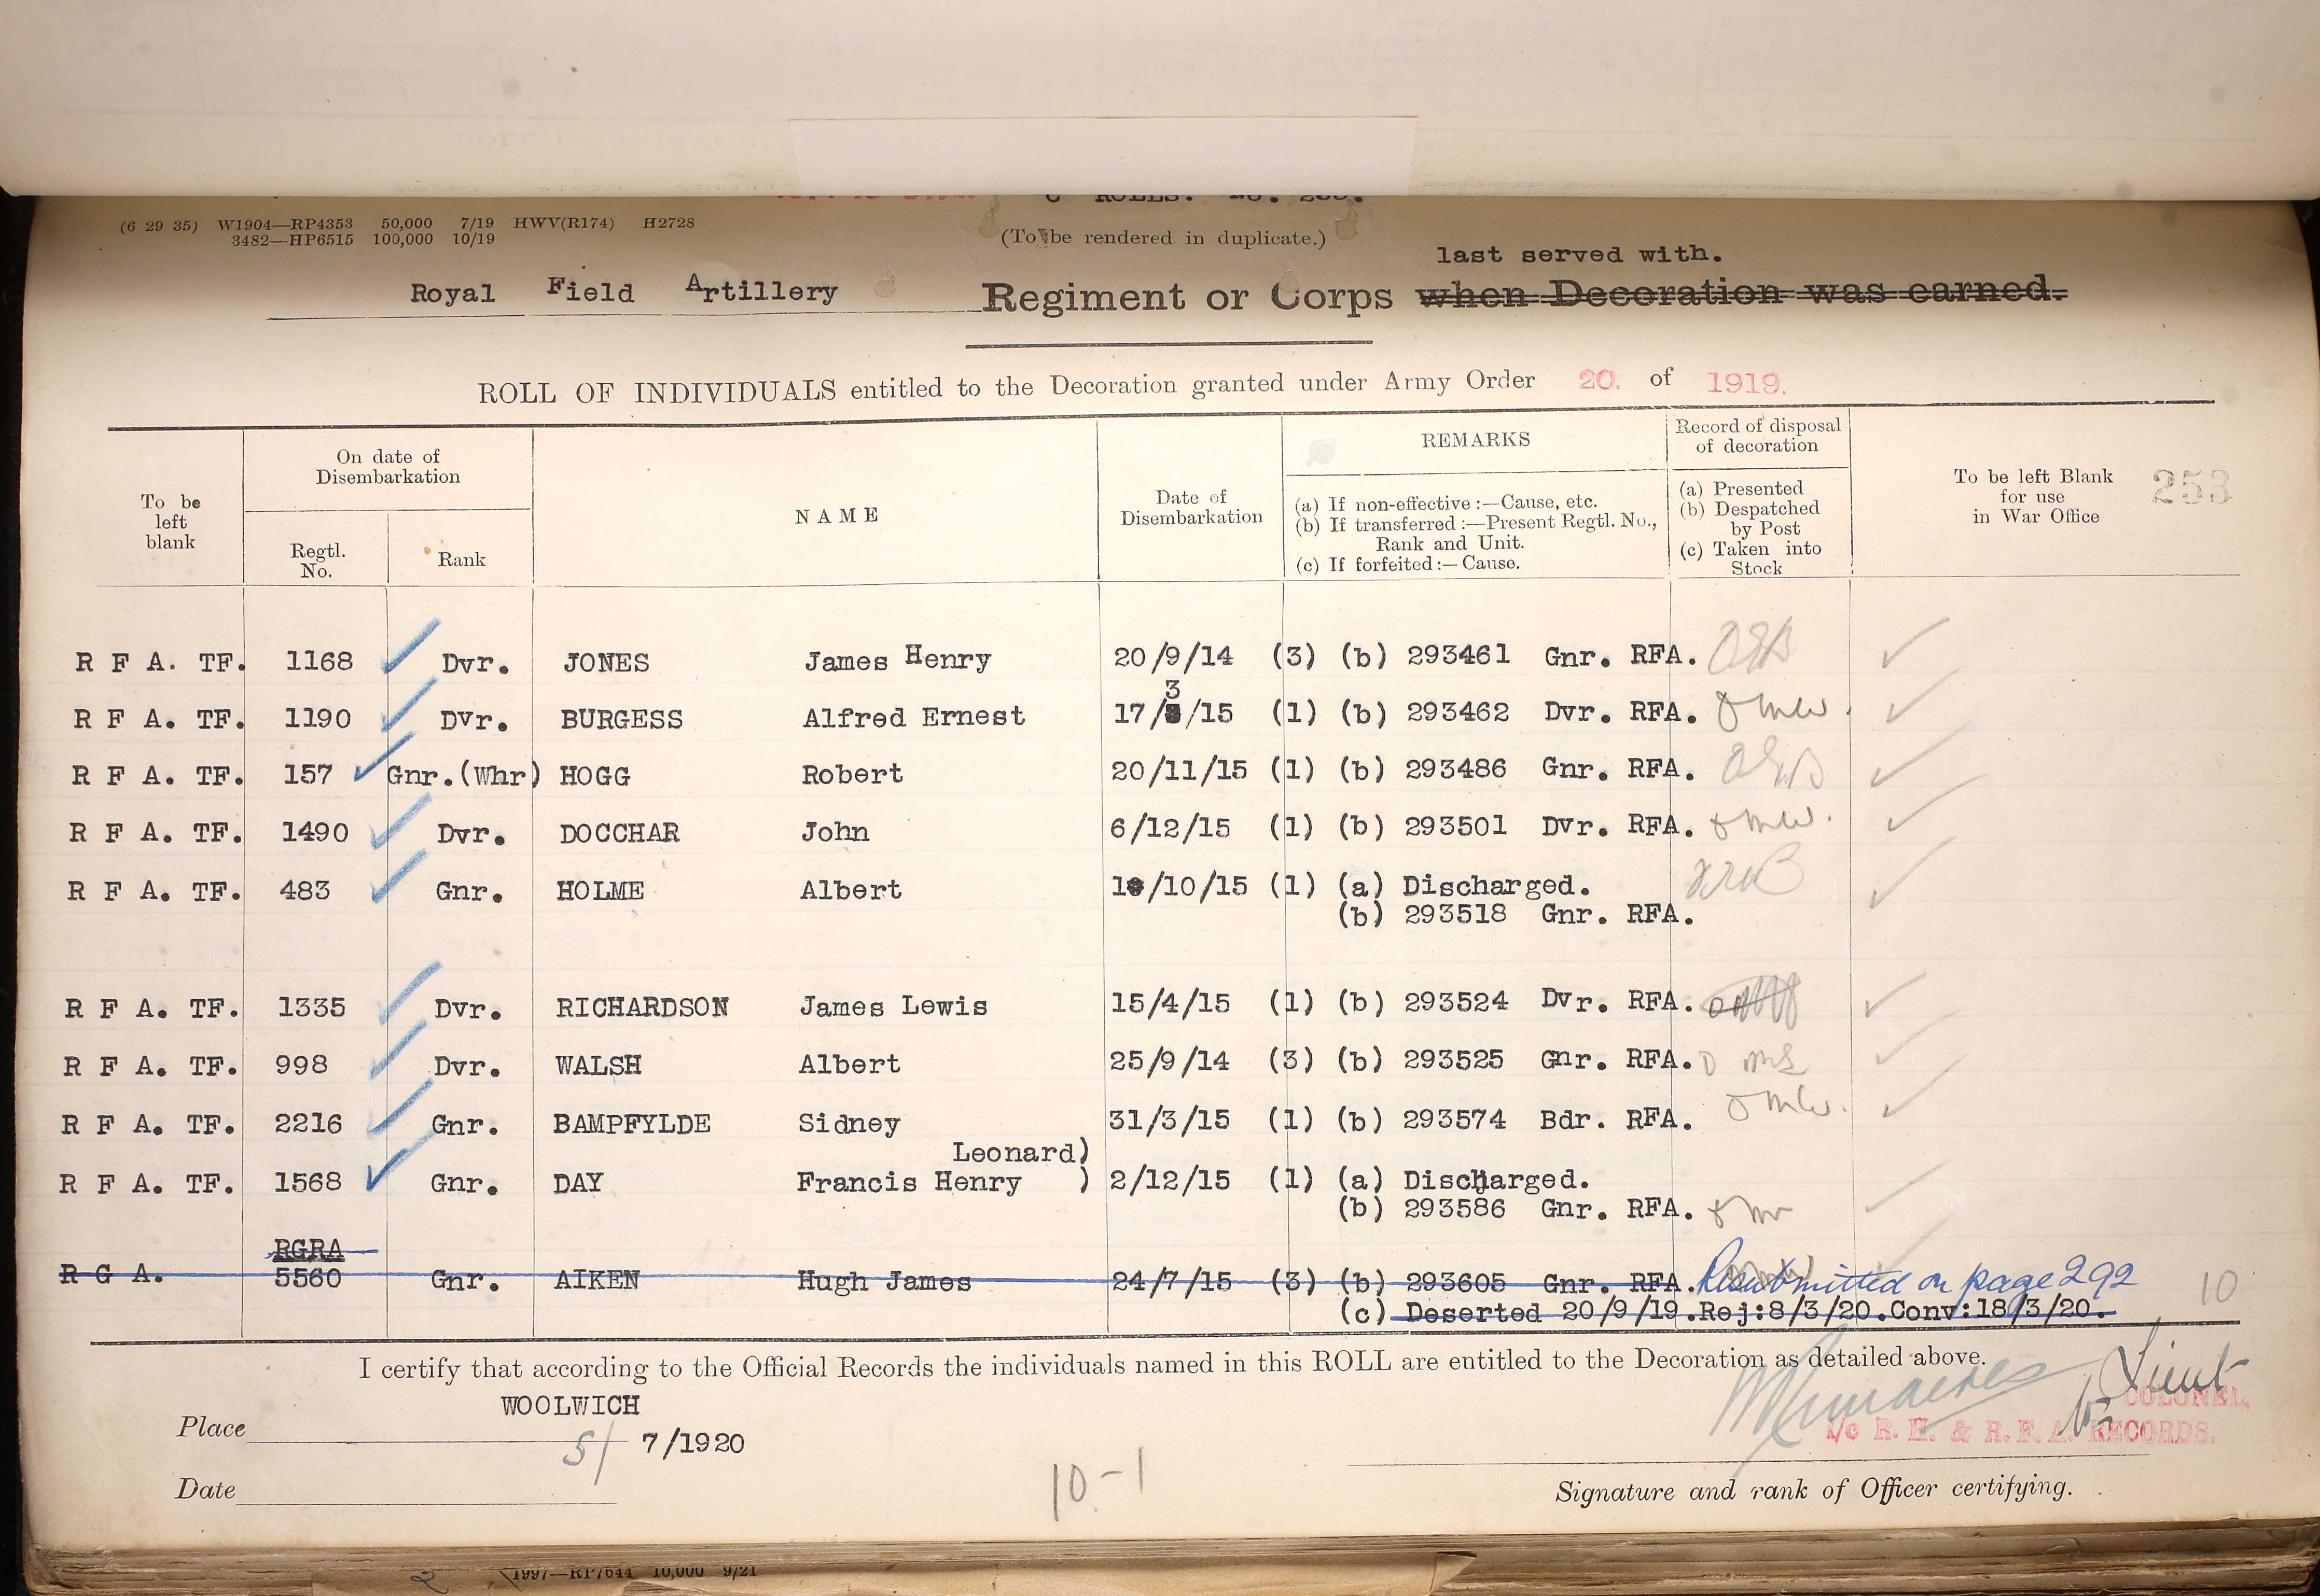 (6 29 35) W1904—RP4353 50,000 7/19 HWV(R174) H2728
3482—HP6515 100,000 10/19
(To be rendered in duplicate.)
last served with.
Royal Field Artillery Regiment or Corps when Decoration was earned.
ROLL OF INDIVIDUALS entitled to the Decoration granted under Army Order 20. of 1919.
To be left blank
On date of Disembarkation
Regtl. No.
Rank
NAME
Date of Disembarkation
REMARKS
(a) If non-effective :—Cause, etc.
(b) If transferred :—Present Regtl. No., Rank and Unit.
(c) If forfeited :— Cause.
Record of disposal of decoration
(a) Presented
(b) Despatched by Post
(c) Taken into Stock
To be left Blank for use in War Office
253
R F A. TF. 1168 Dvr. JONES James Henry 20/9/14 (3) (b) 293461 Gnr. RFA.
3
R F A. TF. 1190 Dvr. BURGESS Alfred Ernest 17/ /15 (1) (b) 293462 Dvr. RFA.
R F A. TF. 157 Gnr.(Whr) HOGG Robert 20/11/15 (1) (b) 293486 Gnr. RFA.
R F A. TF. 1490 Dvr. DOCCHAR John 6/12/15 (1) (b) 293501 Dvr. RFA.
R F A. TF. 483 Gnr. HOLME Albert /10/15 (1) (a) Discharged.
(b) 293518 Gnr. RFA.
R F A. TF. 1335 Dvr. RICHARDSON James Lewis 15/4/15 (1) (b) 293524 Dvr. RFA.
R F A. TF. 998 Dvr. WALSH Albert 25/9/14 (3) (b) 293525 Gnr. RFA.
R F A. TF. 2216 Gnr. BAMPFYLDE Sidney 31/3/15 (1) (b) 293574 Bdr. RFA.
Leonard)
R F A. TF. 1568 Gnr. DAY Francis Henry ) 2/12/15 (1) (a) Discharged.
(b) 293586 Gnr. RFA.
RGRA
R G A. 5560 Gnr. AIKEN Hugh James 24/7/15 (3) (b) 293605 Gnr. RFA. Resubmitted on page 292
(c) Deserted 20/9/19.Rej:8/3/20.Conv:18/3/20.
10
I certify that according to the Official Records the individuals named in this ROLL are entitled to the Decoration as detailed above.
Lieut
COLONEL,
i/c R. H. & R. F. A. RECORDS.
WOOLWICH
Place
5/ 7/1920
Date
10-1
Signature and rank of Officer certifying.
1997—RP7644 10,000 9/21